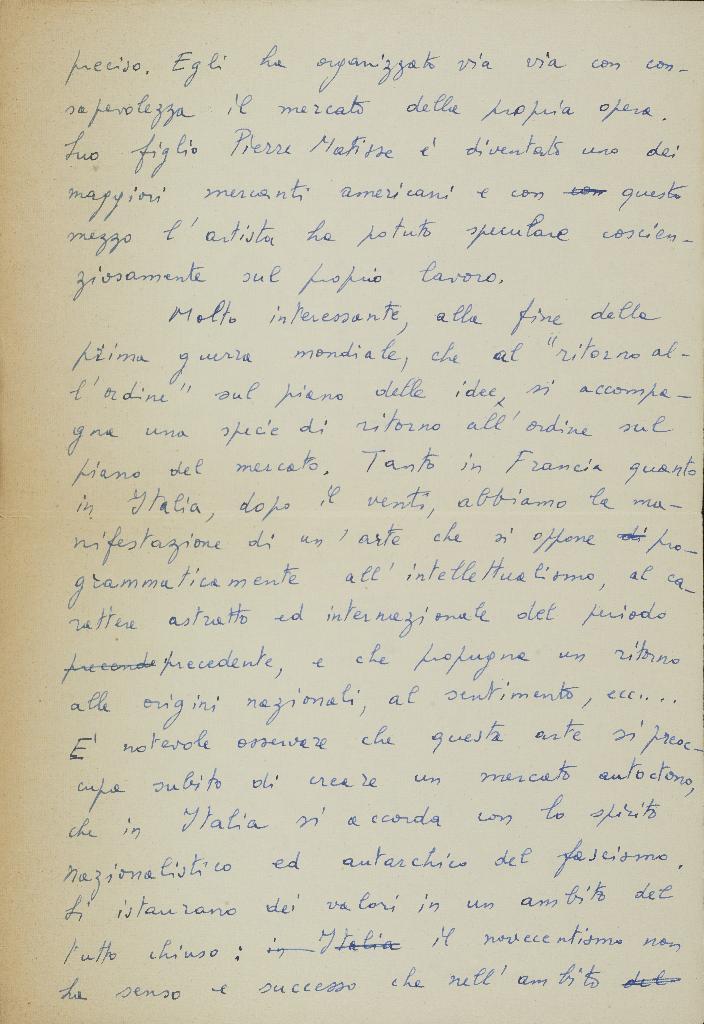 preciso. Egli ha organizzato via via con con-
sapevolezza il mercato della propria opera.
Suo figlio Pierre Matisse è diventato uno dei
maggiori mercanti americani e con con questo
mezzo l'artista ha potuto speculare coscien-
ziosamente sul proprio lavoro.
Molto interessante, alla fine della
prima guerra mondiale, che al "ritorno al-
l'ordine" sul piano delle idee, si accompa-
gna una specie di ritorno all'ordine sul
piano del mercato. Tanto in Francia quanto
in Italia, dopo il venti, abbiamo la ma-
nifestazione di un'arte che si oppone di pro-
grammaticamente all'intellettualismo, al ca-
rattere astratto ed internazionale del periodo
precende precedente, e che propugna un ritorno
alle origini nazionali, al sentimento, ecc....
E' notevole osservare che questa arte si preoc-
cupa subito di creare un mercato autoctono,
che in Italia si accorda con lo spirito
nazionalistico ed autarchico del fascismo.
Si istaurano dei valori in un ambito del
tutto chiuso: in Italia il novecentismo non
ha senso e successo che nell'ambito del